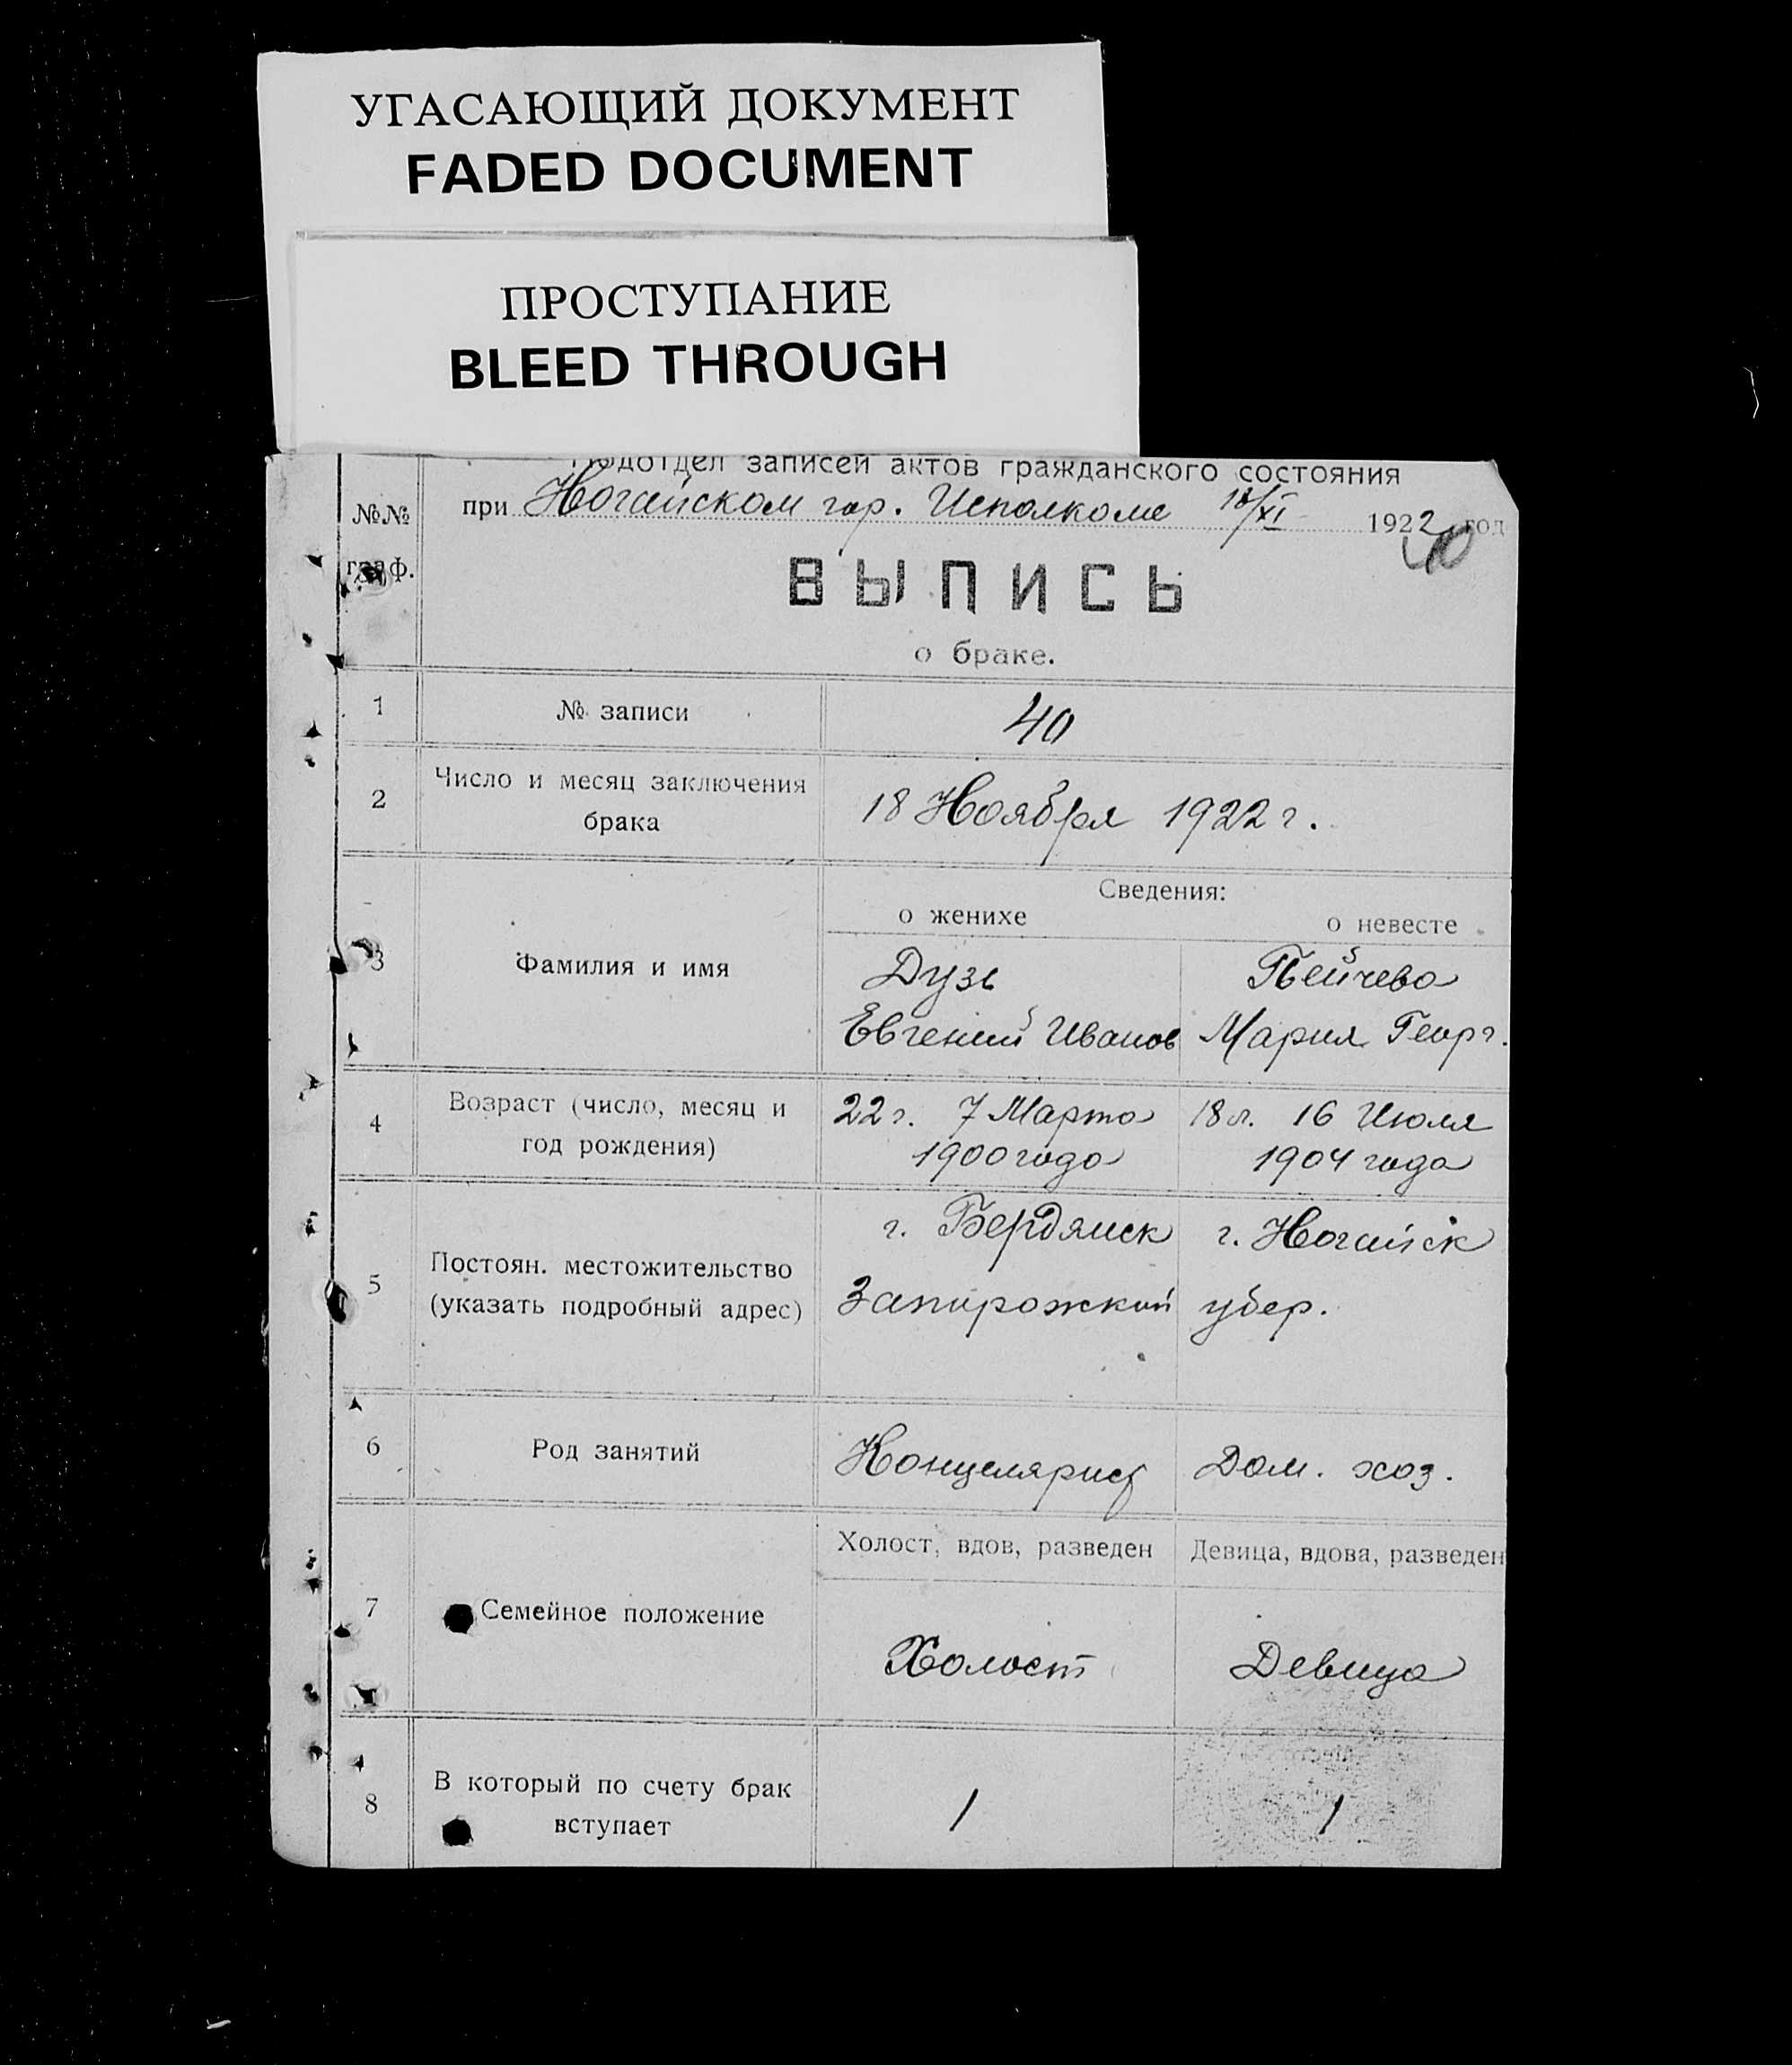 УГАСАЮЩИЙ ДОКУМЕНТ
FADED DOCUMENT
ПРОСТУПАНИЕ
BLEED THROUGH
Подотдел записей актов гражданского состояния
при Ногайском гор. Исполкоме 18/XI 1922 год
40
№№
граф.
ВЫПИСЬ
о браке.
1 № записи 40
2 Число и месяц заключения
брака
18 Ноября 1922 г.
Сведения:
о женихе о невесте
3 Фамилия и имя
Дузь
Евгений Иванов
Пейчева
Мария Георг.
4 Возраст (число, месяц и
год рождения)
22 г. 7 Марта
1900 года
18 л. 16 Июля
1904 года
5 Постоян. местожительство
(указать подробный адрес)
г. Бердянск г. Ногайск
Запорожской губер.
6 Род занятий Концелярист Дом. хоз.
Холост, вдов, разведен Девица, вдова, разведен
7 Семейное положение
Холост Девица
8 В который по счету брак
вступает
1 1